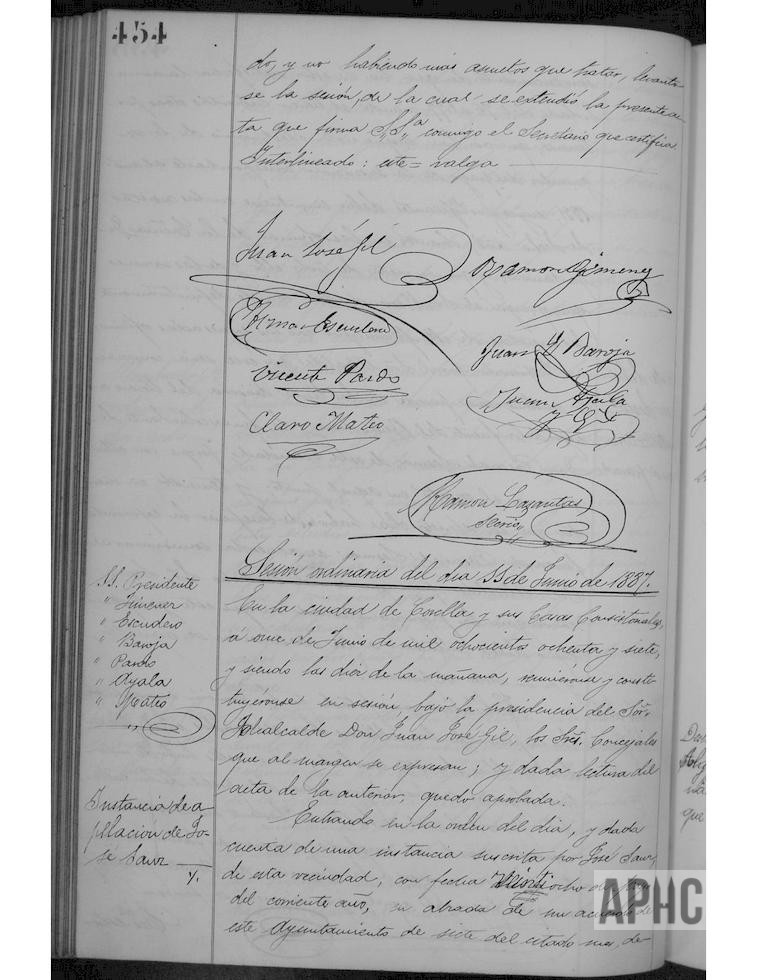 454
do, y no habiendo más asuntos que tratar, levantó-
se la sesión, de la cual se extendió la presente ac-
ta que firma S.Sª conmigo el Secretario que certifica.
Interlineado: este = valga
Juan José Gil
Ramon Gimenez
Escudero
Juan Y Baroja
Vicente Pardo
Juan Ayala
y Gil
Claro Mateo
Ramon
Srio
Sesión ordinaria del dia 11 de Junio de 1887.
SS. Presidente
" Jimenez
" Escudero
" Baroja
" Pardo
" Ayala
" Mateo
En la ciudad de Corella y sus Casas Consistoriales,
á once de Junio de mil ochocientos ochenta y siete,
y siendo las diez de la mañana, reuniéronse y consti-
tuyéronse en sesión, bajo la presidencia del Sor.
Alcalde Don Juan José Gil, los Sres. Concejales
que al margen se expresan; y dada lectura del
acta de la anterior, quedó aprobada.
Instancia de a
pelacion de Jo-
se Sanz
Entrando en la orden del dia, y dada
cuenta de una instancia suscrita por José Sanz,
de esta vecindad, con fecha veinti ocho de
del corriente año, en alzada de un acuerdo de
este Ayuntamiento de siete del citado mes, de-
APHC